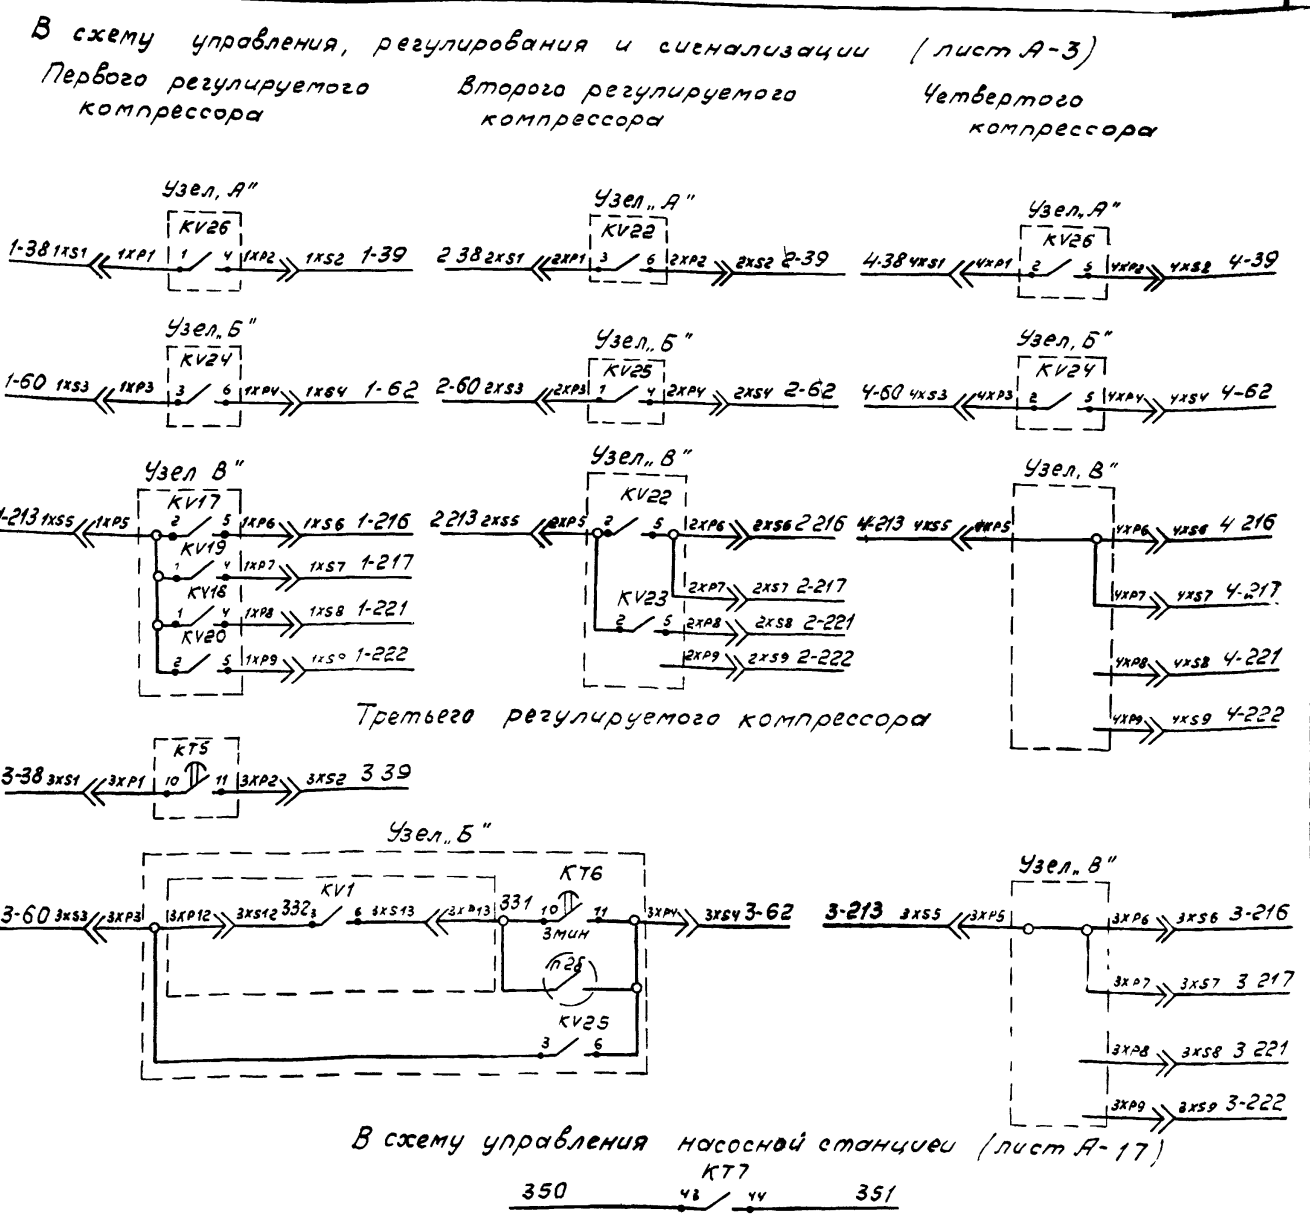 В схему управления, регулирования и сигнализации (лист А-3)
Первого регулируемого компрессора
Второго регулируемого компрессора
Четвертого компрессора
Узел „А"
KV26
1-38 1XS1 1XP1 1 4 1XP2 1XS2 1-39
Узел „А"
KV22
2 38 2XS1 2XP1 3 6 2XP2 2XS2 2-39
Узел „А"
KV26
4-38 4XS1 4XP1 2 5 4XP2 4XS2 4-39
Узел „Б"
KV24
1-60 1XS3 1XP3 3 6 1XP4 1XS4 1-62
Узел „Б"
KV25
2-60 2XS3 2XP3 1 4 2XP4 2XS4 2-62
Узел „Б"
KV24
4-60 4XS3 4XP3 2 5 4XP4 4XS4 4-62
Узел В"
KV17
1-213 1XS5 1XP5 2 5 1XP6 1XS6 1-216
KV19
1 4 1XP7 1XS7 1-217
KV18
1 4 1XP8 1XS8 1-221
KV20
2 5 1XP9 1XS9 1-222
Узел „В"
KV22
2 213 2XS5 2XP5 2 5 2XP6 2XS6 2 216
2XP7 2XS7 2-217
KV23
2 5 2XP8 2XS8 2-221
2XP9 2XS9 2-222
Узел „В"
4-213 4XS5 4XP5 4XP6 4XS6 4 216
4XP7 4XS7 4-217
4XP8 4XS8 4-221
4XP9 4XS9 4-222
Третьего регулируемого компрессора
KT5
3-38 3XS1 3XP1 10 11 3XP2 3XS2 3 39
Узел „Б"
KV1
KT6
3-60 3XS3 3XP3 3XP12 3XS12 332 3 6 3XS13 3XP13 331 10 11 3XP4 3XS4 3-62
3мин
п2б
KV25
3 6
Узел „В"
3-213 3XS5 3XP5 3XP6 3XS6 3-216
3XP7 3XS7 3 217
3XP8 3XS8 3 221
3XP9 3XS9 3-222
В схему управления насосной станцией (лист А-17)
KT7
350 43 44 351